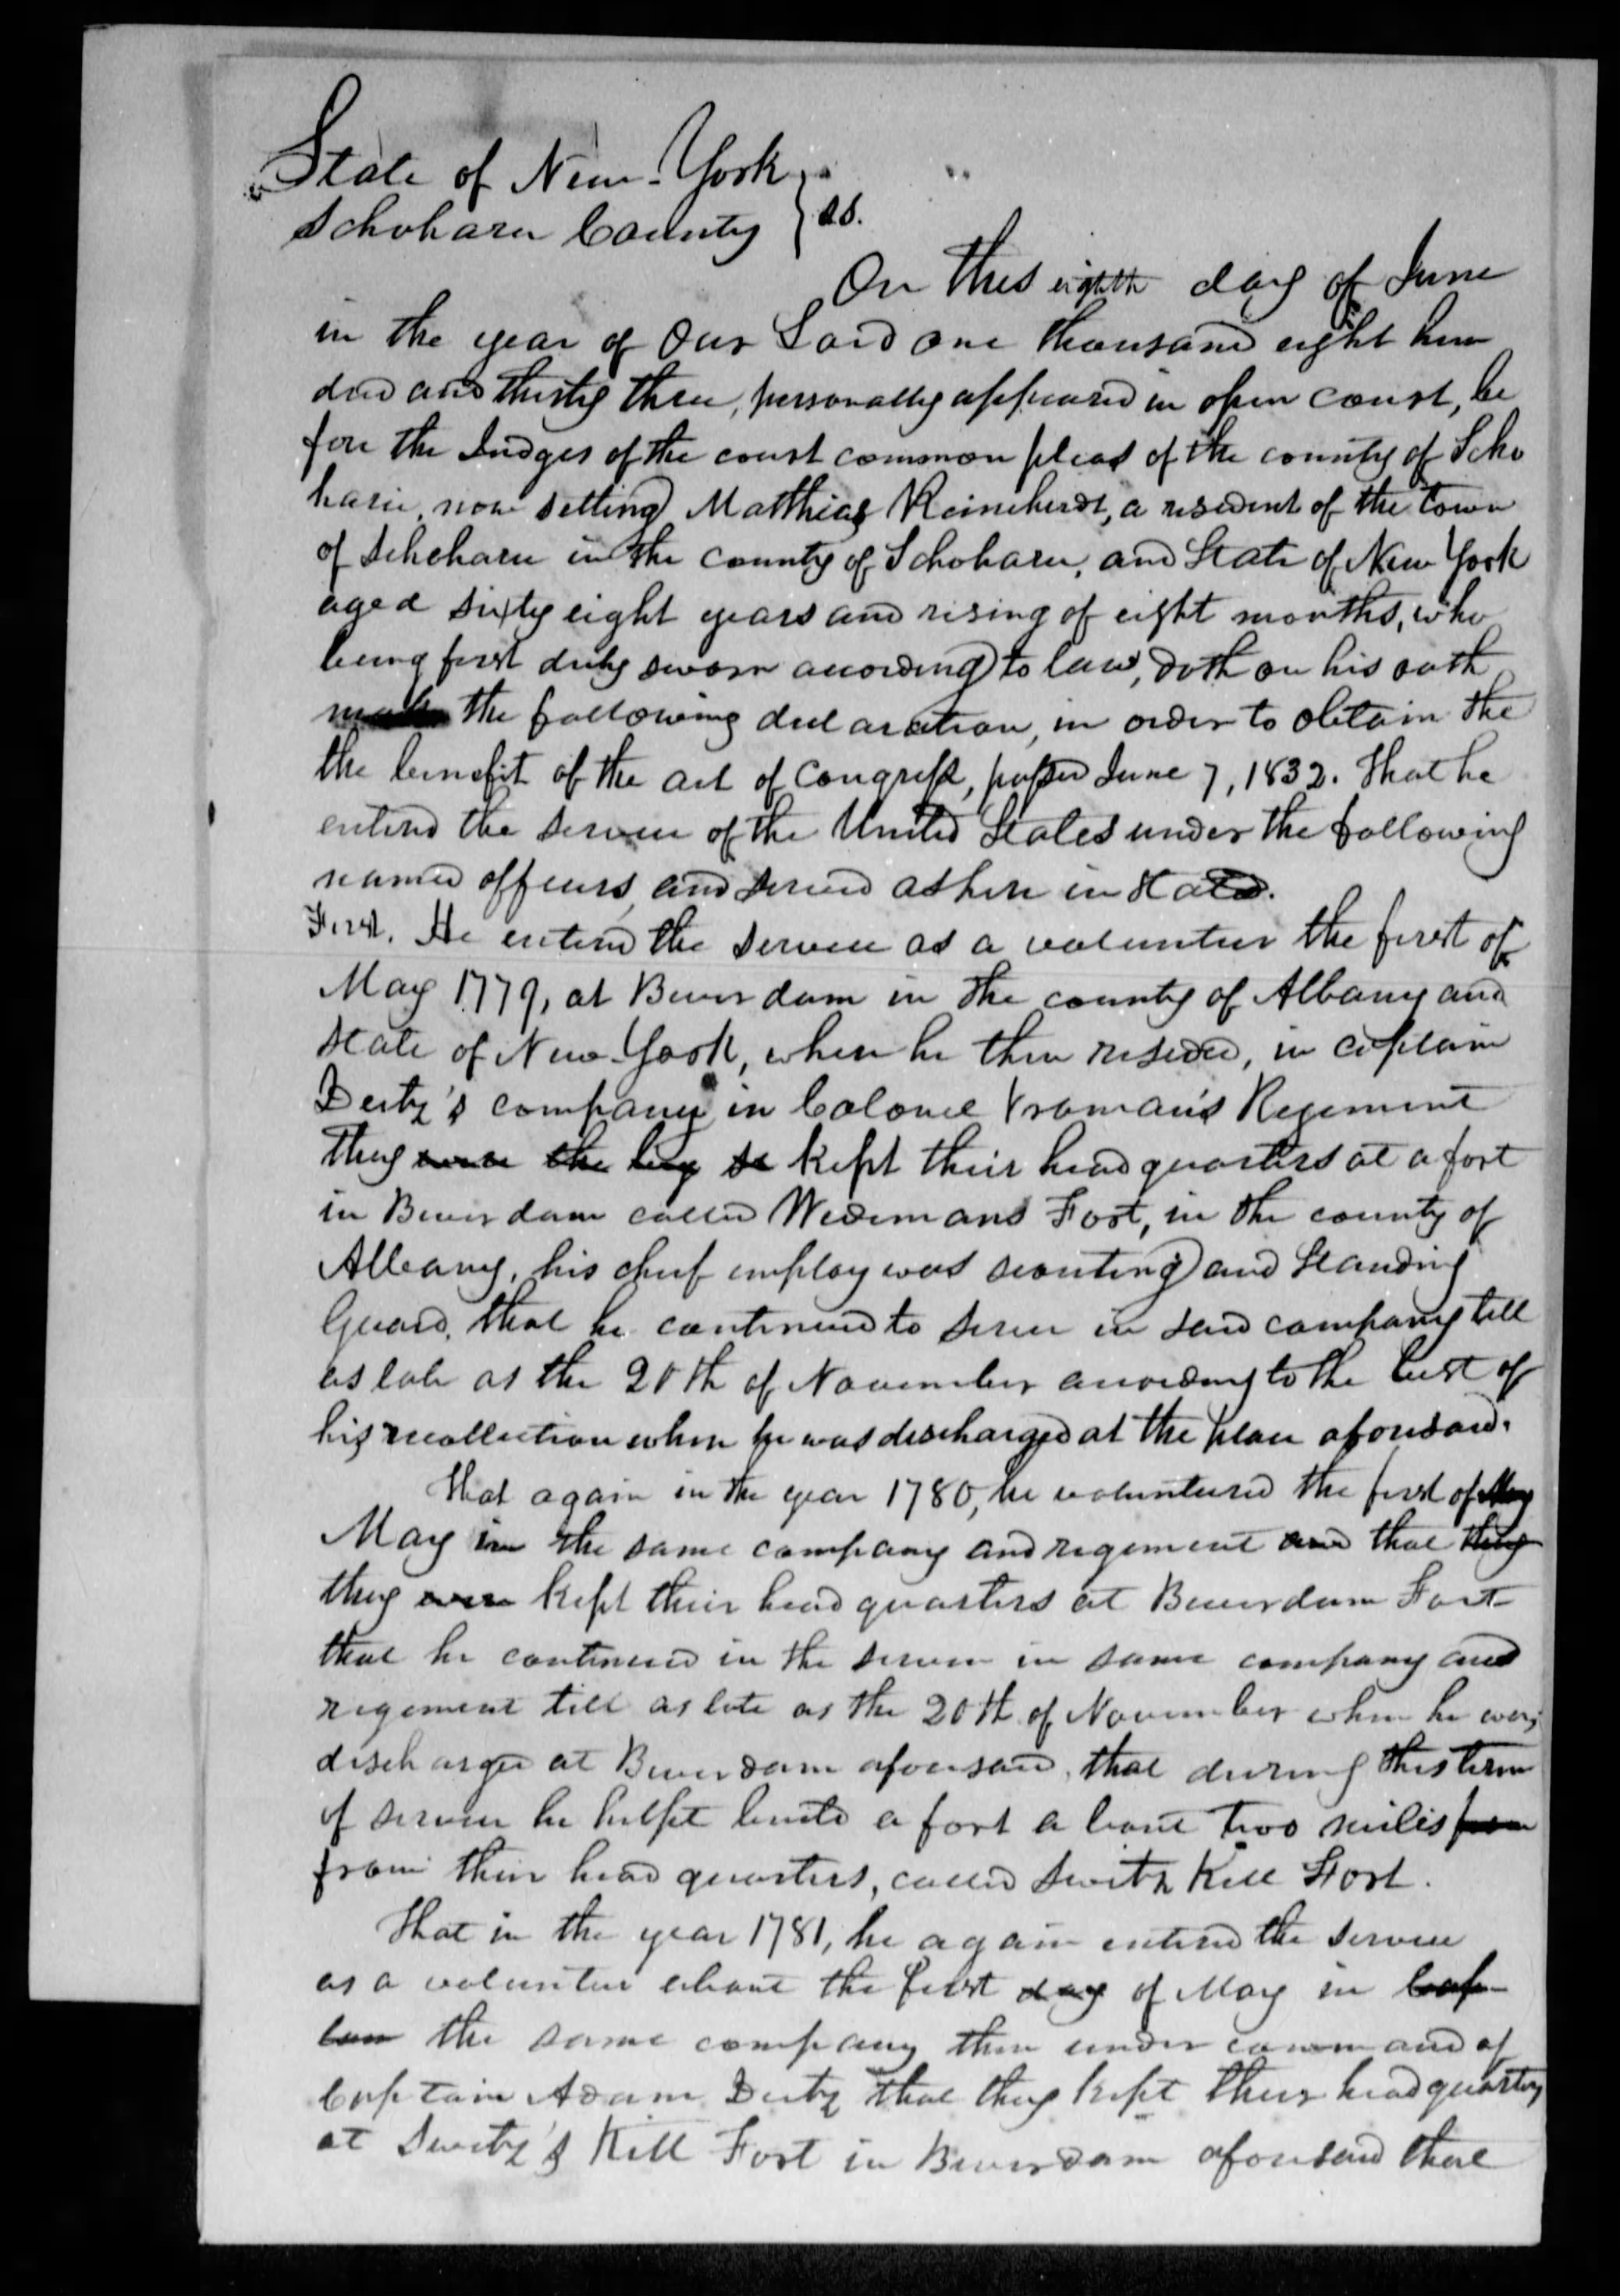 State of New-York
Schoharie County } ss.
On this eighth day of June
in the year of our Lord one thousand eight hun
dred and thirty three, personally appeared in open court, be
fore the Judges of the court common pleas of the county of Scho
harie, now setting Matthias Reinehardt, a resident of the town
of Schoharie in the county of Schoharie, and State of New York
aged sixty eight years and rising of eight months, who
being first duly sworn according to law, doth on his oath
make the following declaration, in order to obtain the
the benefit of the act of Congress, passed June 7, 1832. That he
entered the service of the United States under the following
named officers and served as here in stated.
First. He entered the service as a volunteer the first of
May 1779, at Beverdam in the county of Albany and
State of New-York, where he then resided, in captain
Deitz's company in Colonel Vroman's Regement
they were the kept their head quarters at a fort
in Beverdam called Wedemans Fort, in the county of
Albany, his chief employ was scouting and Standing
Guard, that he continued to serve in said company till
as late as the 20th of November according to the best of
his recollection when he was discharged at the place aforesaid.
That again in the year 1780, he volunteered the first of May
May in the same company and regement and that they
they were kept their head quarters at Beverdam Fort
that he continued in the service in same company and
regement till as late as the 20th of November when he was
discharged at Beverdam aforesaid, that during this term
of service he helpt build a fort about two miles from
from their head quarters, called Switz Kill Fort.
That in the year 1781, he again entered the service
as a volunteer about the first day of May in Cap-
tain the same company then under command of
Captain Adam Deitz that they kept their headquarters
at Switz's Kill Fort in Beverdam aforesaid that